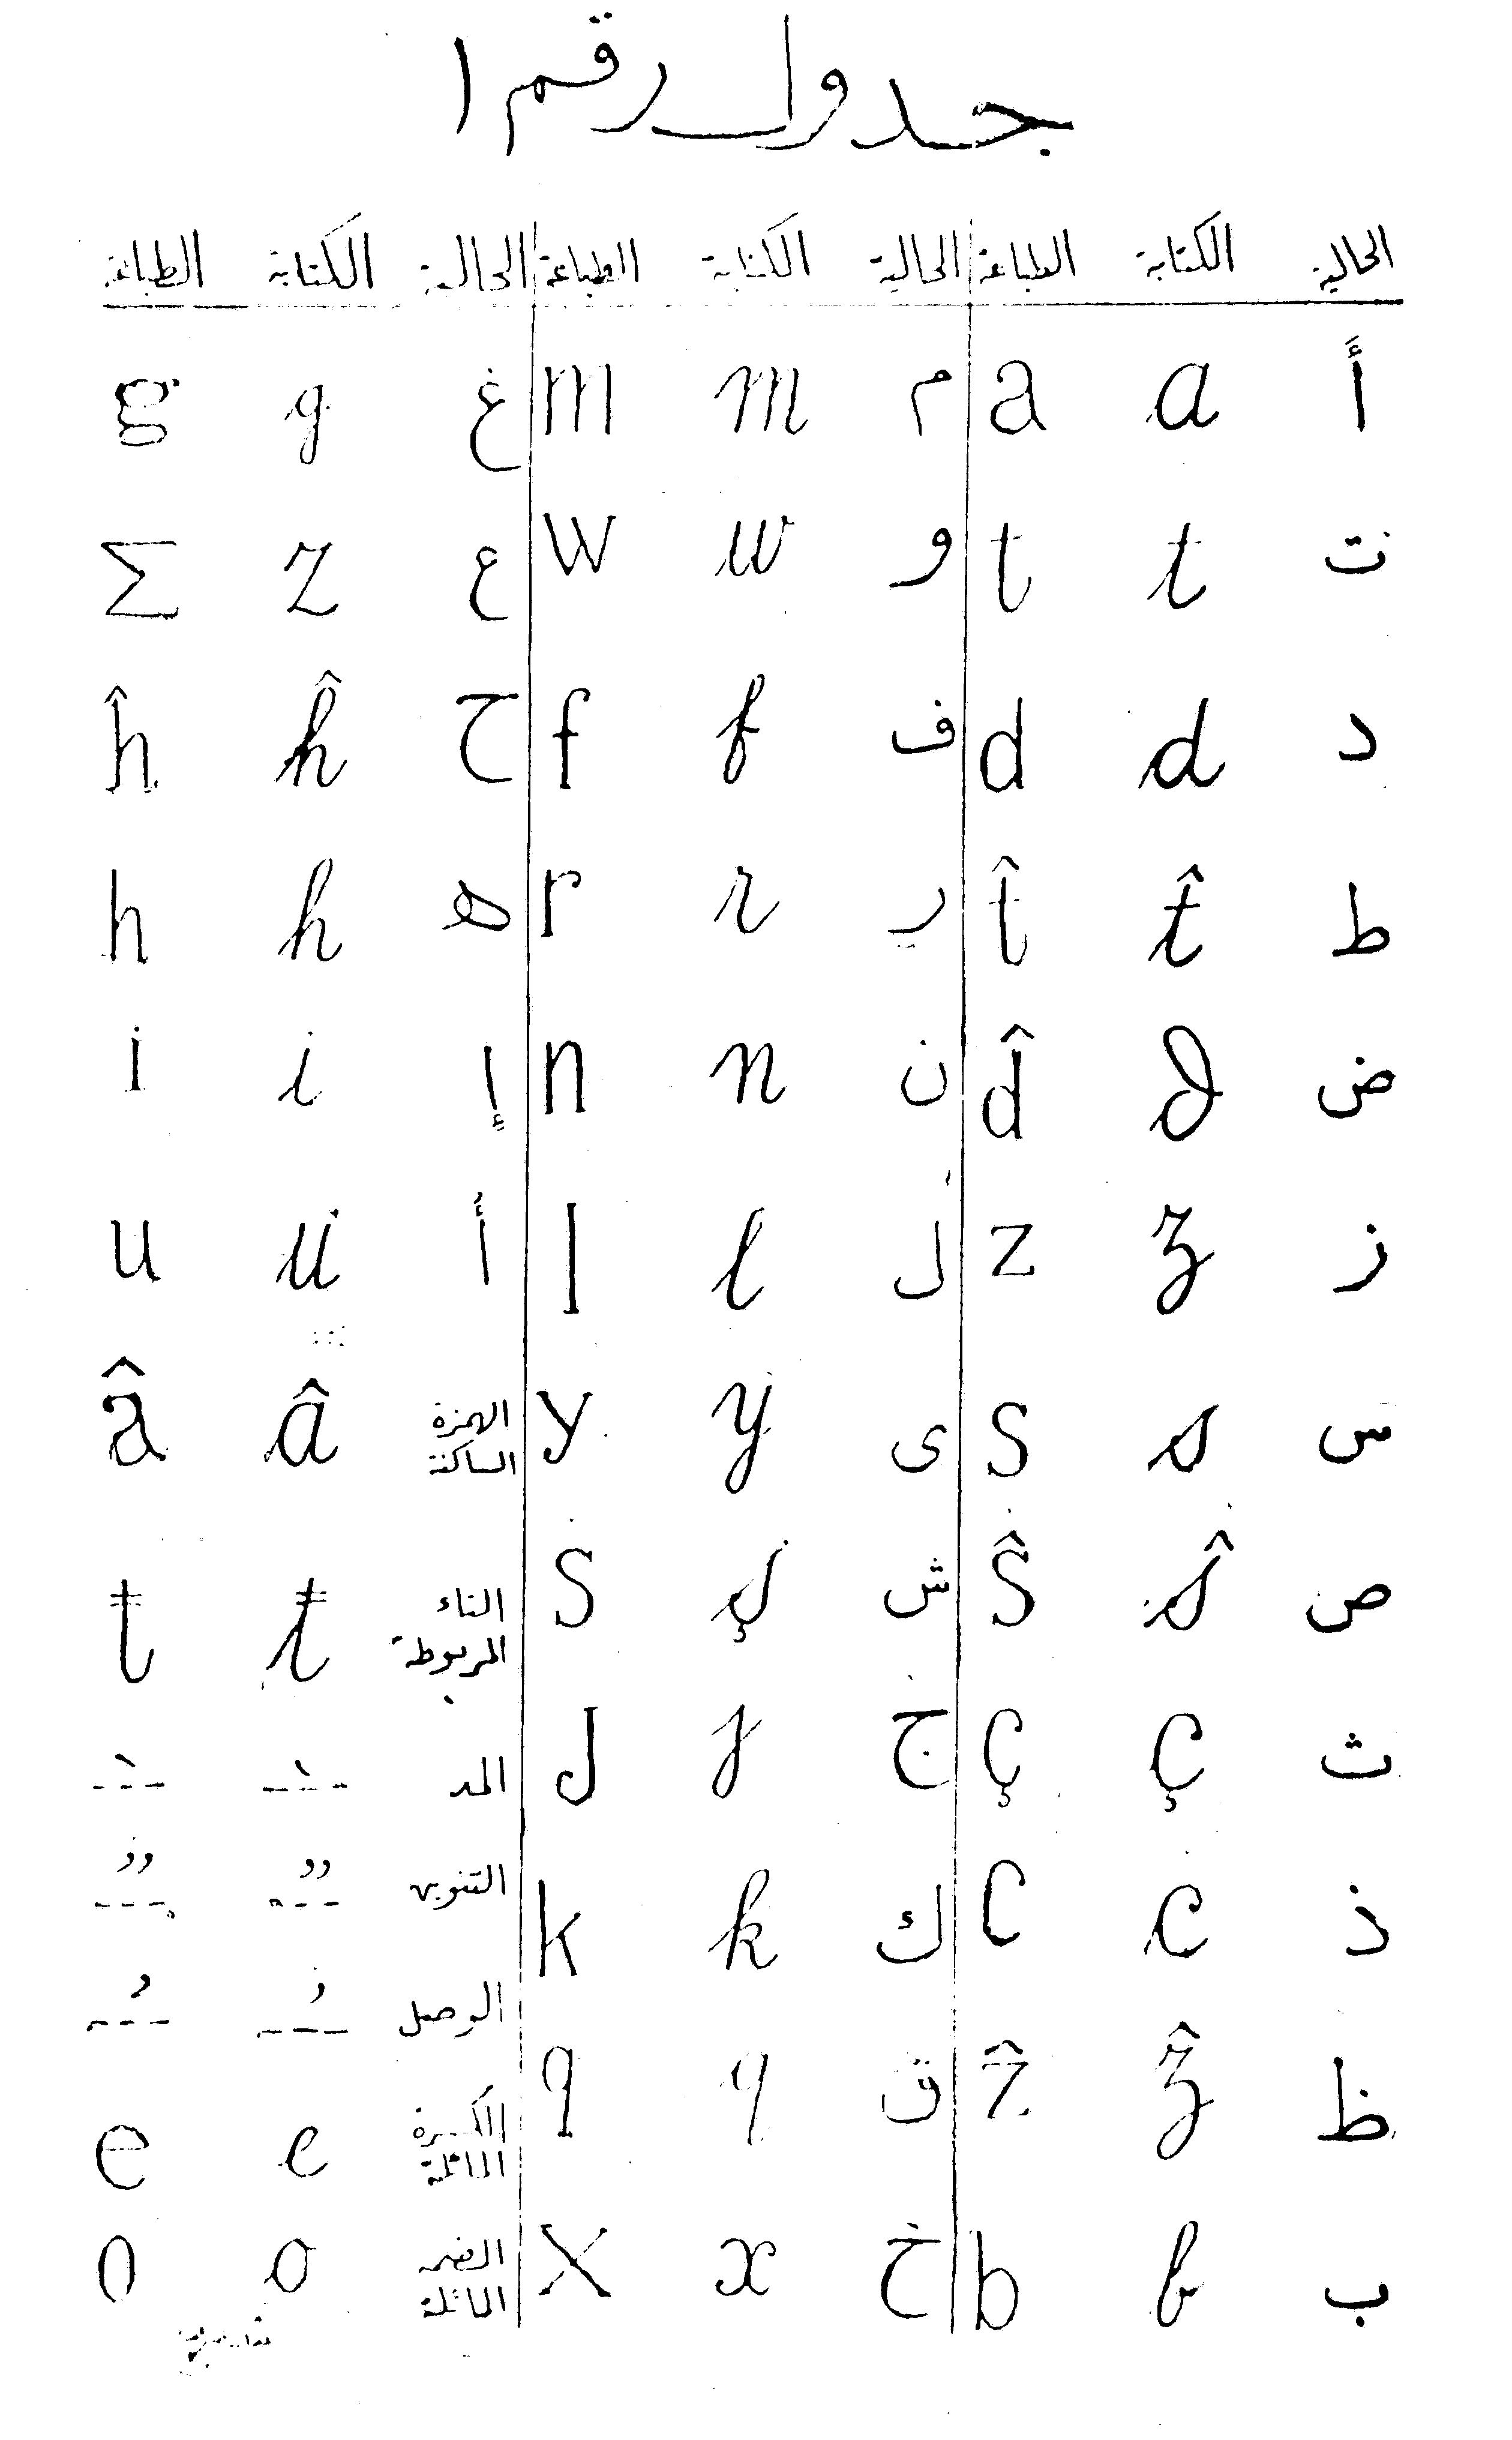 جدول رقم ١
الحالية الكتابة الطباعة الحالية الكتابة الطباعة الحالية الكتابة الطباعة
أَ a a م m m غ g g
ت t t و w w ع z Σ
د d d ف f f ح ĥ ĥ
ط t̂ t̂ ر r r ه h h
ض ∂ d̂ ن n n إِ i i
ز ʒ z ل l l أُ u u
س s s ى y y الهمزة الساكنة â â
ص ŝ ŝ ش ş s التاء المربوطة ŧ ŧ
ث ç ç ج J J المد --`-- --`--
ذ c c ك k k التنوين --،،-- --،،--
ظ ʒ̂ ẑ ق q q الوصل --،-- --،--
ب b b خ x x الكسرة المائلة e e
الضمة المائلة o o